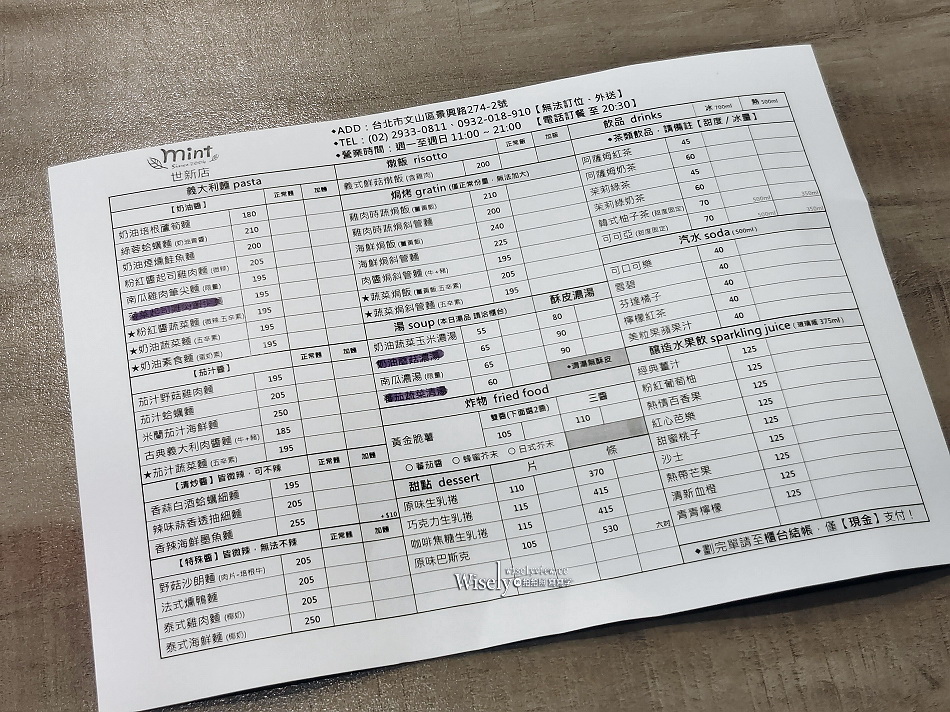 mint
Since 2004
世新店
◆ADD：台北市文山區景興路274-2號
◆TEL：(02) 2933-0811．0932-018-910【無法訂位．外送】
◆營業時間：週一至週日 11:00 ~ 21:00 【電話訂餐 至 20:30】
義大利麵 pasta 正常麵 加麵
【奶油醬】
奶油培根蘆筍麵 180
綠蓉蛤蠣麵 (奶油青醬) 210
奶油煙燻鮭魚麵 200
粉紅醬起司雞肉麵 (微辣) 205
南瓜雞肉筆尖麵 (限量) 195
195
★粉紅醬蔬菜麵 (微辣.五辛素) 195
★奶油蔬菜麵 (五辛素) 195
★奶油素食麵 (蛋奶素) 195
【茄汁醬】 正常麵 加麵
茄汁野菇雞肉麵 195
茄汁蛤蠣麵 205
米蘭茄汁海鮮麵 250
古典義大利肉醬麵 (牛+豬) 185
★茄汁蔬菜麵 (五辛素) 195
【清炒醬】皆微辣，可不辣 正常麵 加麵
香蒜白酒蛤蠣細麵 195
辣味蒜香透抽細麵 205
香辣海鮮墨魚麵 255 +$10
【特殊醬】皆微辣，無法不辣 正常麵 加麵
野菇沙朗麵 (肉片-培根牛) 205
法式燻鴨麵 205
泰式雞肉麵 (椰奶) 205
泰式海鮮麵 (椰奶) 250
燉飯 risotto 正常飯 加飯
義式鮮菇燉飯 (含雞肉) 200
焗烤 gratin (僅正常份量，無法加大)
雞肉時蔬焗飯 (薑黃飯) 210
雞肉時蔬焗斜管麵 200
海鮮焗飯 (薑黃飯) 240
海鮮焗斜管麵 225
肉醬焗斜管麵 (牛+豬) 205
★蔬菜焗飯 (薑黃飯.五辛素) 205
★蔬菜焗斜管麵 (五辛素) 195
湯 soup (本日湯品 請洽櫃台) 酥皮濃湯
奶油蔬菜玉米濃湯 55 80
奶油蘑菇濃湯 65 90
南瓜濃湯 (限量) 65 90
番茄蔬菜清湯 60 ◆清湯無酥皮
炸物 fried food
雙醬(下面選2醬) 三醬
黃金脆薯 105 110
○ 番茄醬 ○ 蜂蜜芥末 ○ 日式芥末
甜點 dessert 片 條
原味生乳捲 110 370
巧克力生乳捲 115 415
咖啡焦糖生乳捲 115 415
原味巴斯克 105 530 六吋
飲品 drinks 冰 700ml 熱 500ml
◆茶類飲品，請備註【甜度 / 冰量】
阿薩姆紅茶 45
阿薩姆奶茶 60
茉莉綠茶 45
茉莉綠奶茶 60
韓式柚子茶 (甜度固定) 70 500ml 350ml
可可亞 (甜度固定) 70 500ml 350ml
汽水 soda (500ml)
可口可樂 40
雪碧 40
芬達橘子 40
檸檬紅茶 40
美粒果蘋果汁 40
釀造水果飲 sparkling juice (玻璃瓶 375ml)
經典薑汁 125
粉紅葡萄柚 125
熱情百香果 125
紅心芭樂 125
甜蜜桃子 125
沙士 125
熱帶芒果 125
清新血橙 125
青青檸檬 125
◆劃完單請至櫃台結帳，僅【現金】支付！
Wisely